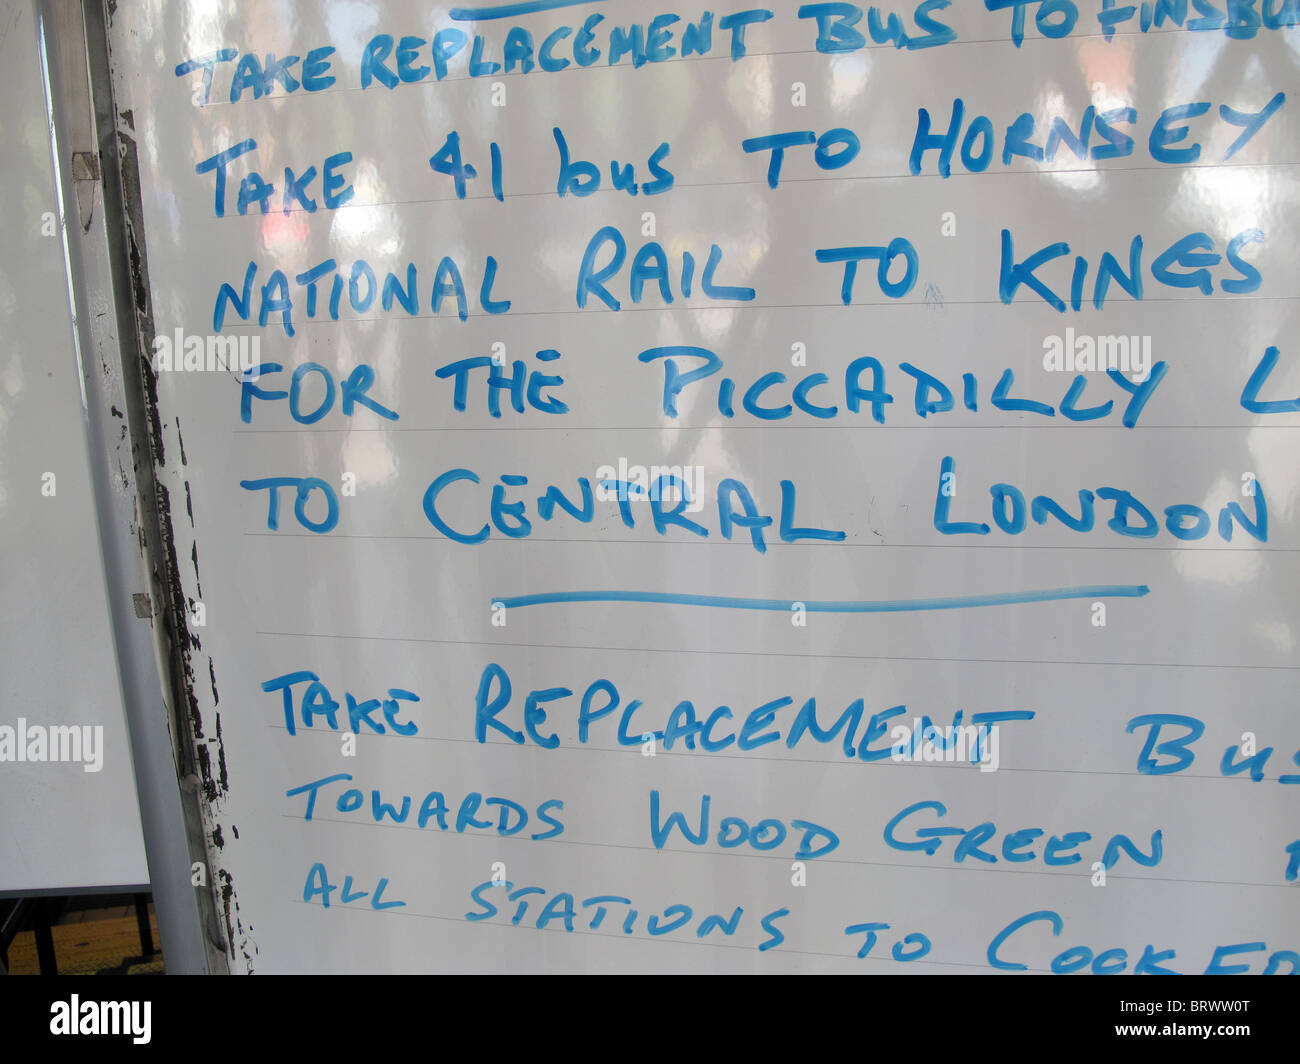 TAKE REPLACEMENT BUS TO FINSBU
TAKE 41 bus TO HORNSEY
NATIONAL RAIL TO KINGS
FOR THE PICCADILLY L
TO CENTRAL LONDON
TAKE REPLACEMENT BUS
TOWARDS WOOD GREEN
ALL STATIONS TO COCKFO
alamy
Image ID: BRWW0T
www.alamy.com